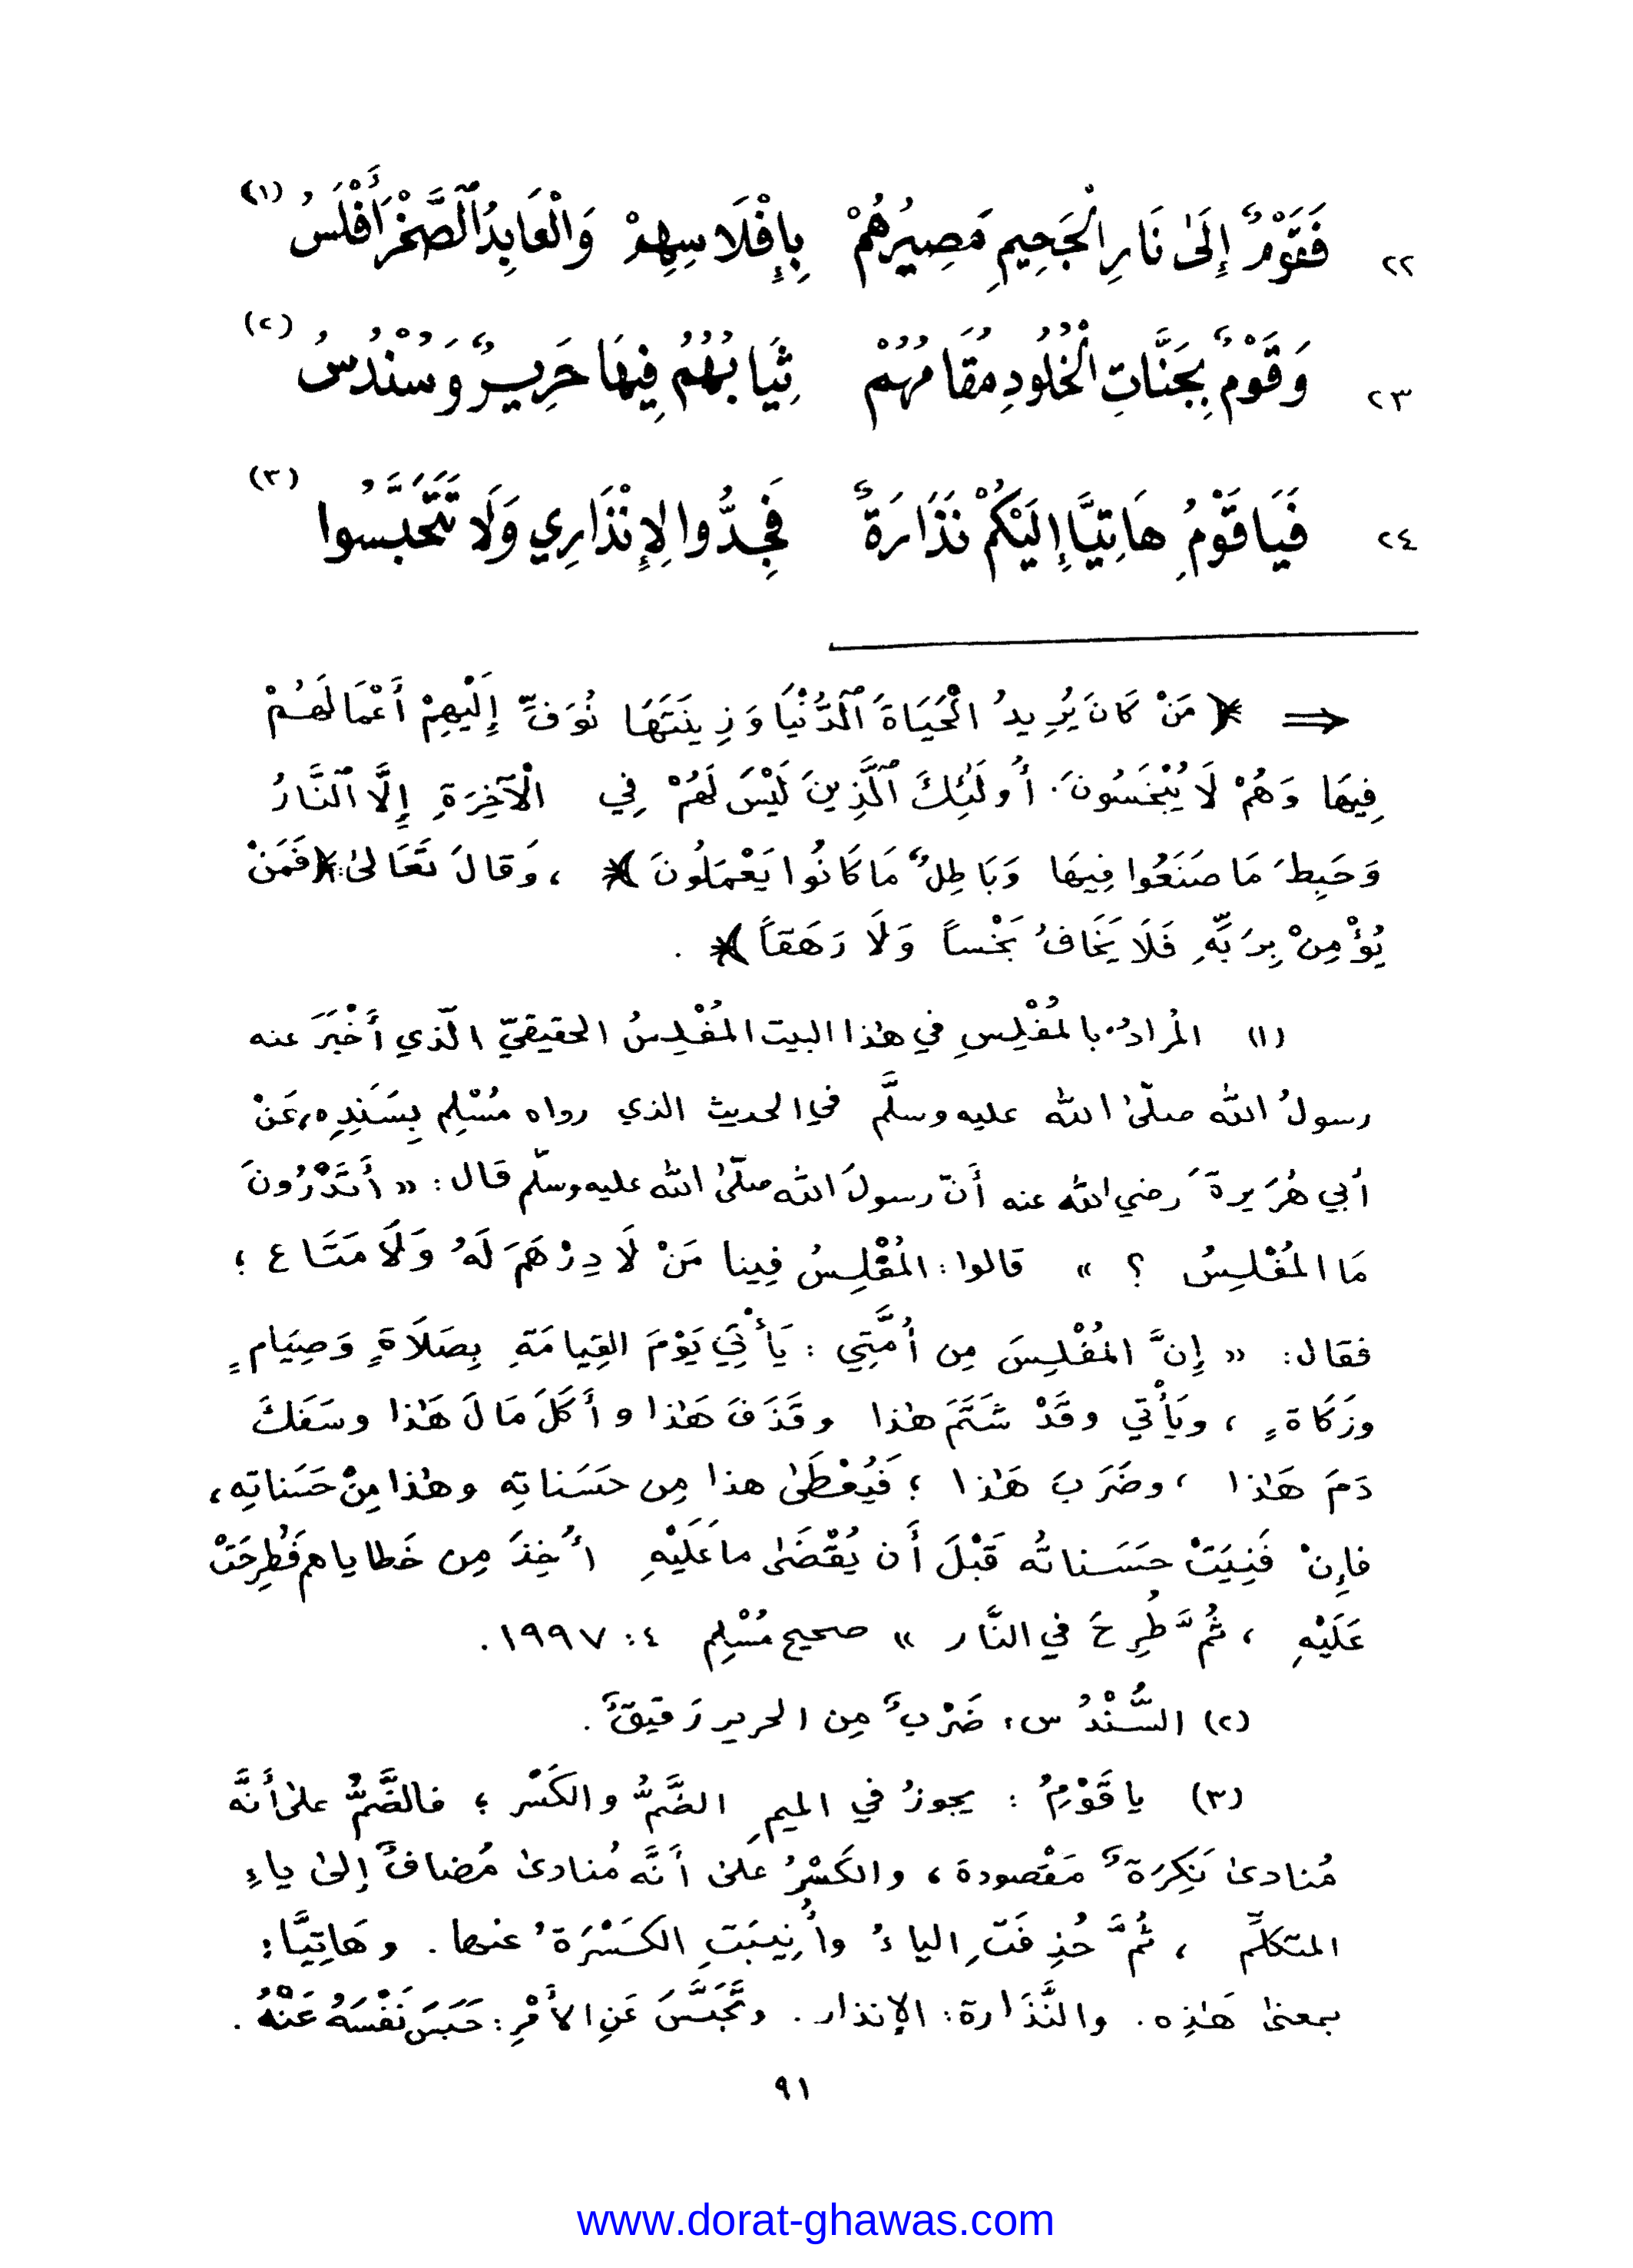 ٢٢ فَقَوْمٌ إِلَىٰ نَارِ الْجَحِيمِ مَصِيرُهُمْ بِإِفْلَاسِهِمْ وَالْعَابِدُ الصَّخْرَ أَفْلَسُ (١)
٢٣ وَقَوْمٌ بِجَنَّاتِ الْخُلُودِ مُقَامُهُمْ ثِيَابُهُمُ فِيهَا حَرِيرٌ وَسُنْدُسُ (٢)
٢٤ فَيَا قَوْمُِ هَاتِيَّا إِلَيْكُمْ نَذَارَةٌ فَجِدُّوا لِإِنْذَارِي وَلَا تَتَحَبَّسُوا (٣)
⇐ ﴿ مَنْ كَانَ يُرِيدُ الْحَيَاةَ ٱلدُّنْيَا وَزِينَتَهَا نُوَفِّ إِلَيْهِمْ أَعْمَالَهُمْ
فِيهَا وَهُمْ لَا يُبْخَسُونَ. أُولَٰئِكَ ٱلَّذِينَ لَيْسَ لَهُمْ فِي الْآخِرَةِ إِلَّا ٱلنَّارُ
وَحَبِطَ مَا صَنَعُوا فِيهَا وَبَاطِلٌ مَا كَانُوا يَعْمَلُونَ ﴾ ، وَقَالَ تَعَالىٰ: ﴿ فَمَنْ
يُؤْمِنْ بِرَبِّهِ فَلَا يَخَافُ بَخْساً وَلَا رَهَقاً ﴾ .
(١) المُرادُ بالمُفْلِسِ في هٰذا البيت المُفْلِسُ الحقيقيّ الّذي أَخْبَرَ عنه
رسولُ الله صلّىٰ الله عليه وسلَّم في الحديث الذي رواه مُسْلِم بِسَنَدِه، عَنْ
أبي هُرَيرةَ رضي الله عنه أَنّ رسولَ الله صلّىٰ الله عليه وسلّم قال: « أَتَدْرُونَ
مَا المُفْلِسُ ؟ » قالوا: المُفْلِسُ فِينا مَنْ لَا دِرْهَمَ لَهُ وَلَا مَتَاع ؛
فقال: « إِنَّ المُفْلِسَ مِن أُمَّتِي : يَأْتِي يَوْمَ القِيامَةِ بِصَلَاةٍ وَصِيَامٍ
وزَكَاةٍ ، ويَأْتي وقَدْ شَتَمَ هٰذا وقَذَفَ هَٰذا وأَكَلَ مَالَ هَٰذا وسَفَكَ
دَمَ هَٰذا ، وضَرَبَ هَٰذا ؛ فَيُعْطَىٰ هذا مِن حَسَناتِه وهٰذا مِنْ حَسَناتِه،
فإِنْ فَنِيَتْ حَسَناتُه قَبْلَ أَن يُقْضَىٰ ما عَلَيْهِ أُخِذَ مِن خَطاياهم فَطُرِحَتْ
عَلَيْهِ ، ثُمَّ طُرِحَ في النَّار » صحيح مُسْلِم ٤ : ١٩٩٧ .
(٢) السُّنْدُس: ضَرْبٌ مِن الحرير رَقيقٌ .
(٣) يا قَوْمُِ : يجوزُ في الميمِ الضَّمُّ والكَسْر ؛ فالضَّمُّ علىٰ أَنَّه
مُنادىٰ نَكِرَةٌ مَقْصودة ، والكَسْرُ علىٰ أَنَّه مُنادىٰ مُضافٌ إلىٰ ياءِ
المتكلِّم ، ثُمَّ حُذِفَتِ الياءُ وأُنِيبَتِ الكَسْرَةُ عنها . وهَاتِيَّا:
بمعنىٰ هَٰذِه . والنَّذَارة: الإنذار . وتَحَبَّسَ عَنِ الأَمْرِ: حَبَسَ نَفْسَهُ عَنْهُ .
٩١
www.dorat-ghawas.com